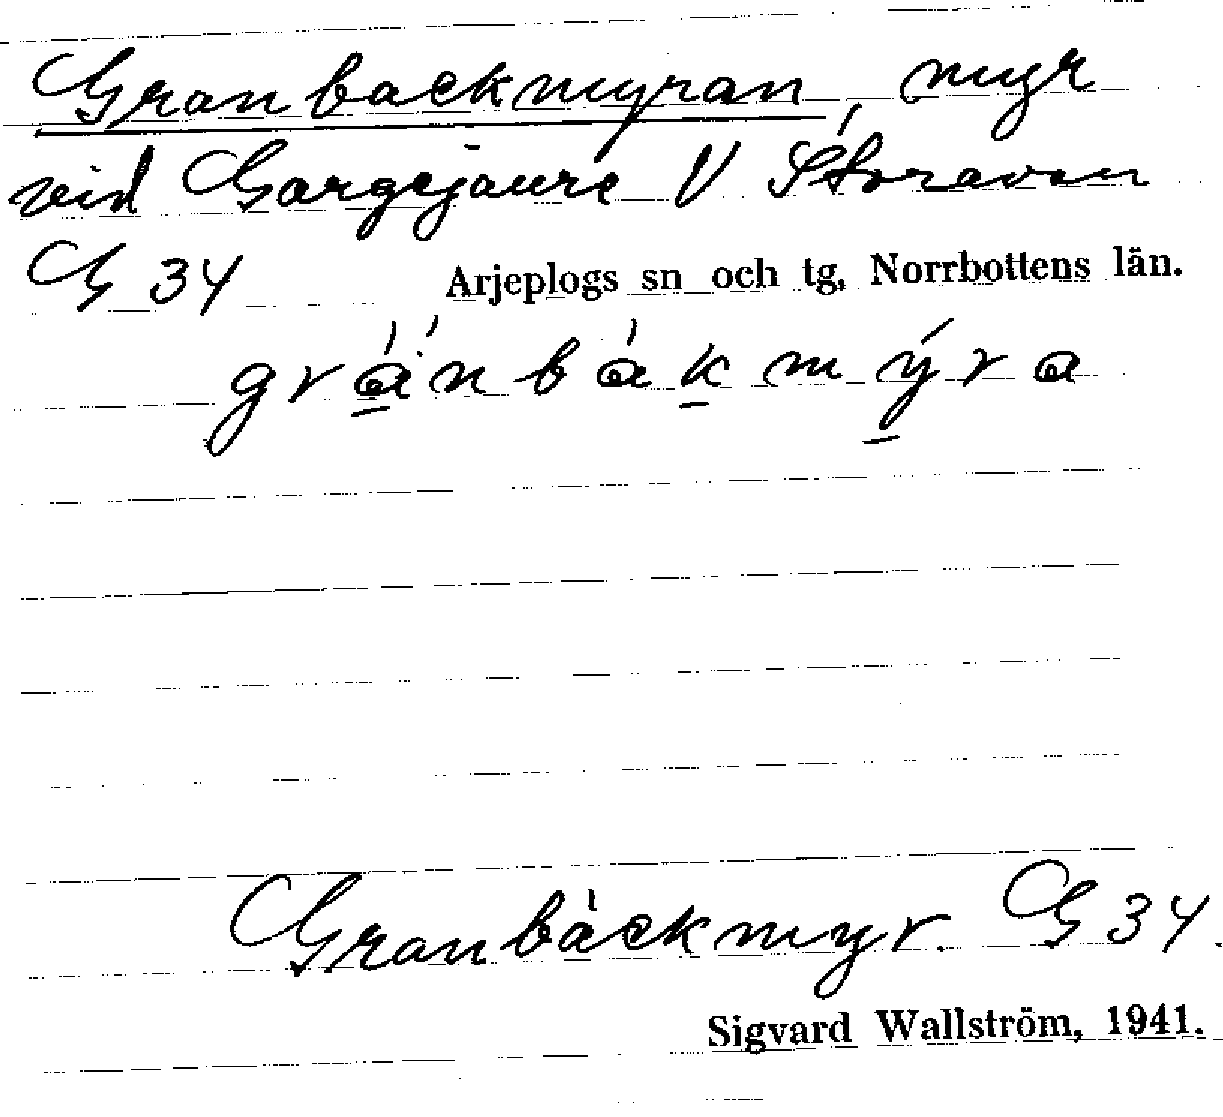 Granbackmyran, myr
vid Gargejaure V Storavan
G 34 Arjeplogs sn och tg, Norrbottens län.
gránbákmýra
Granbäckmyr. G 34.
Sigvard Wallström, 1941.